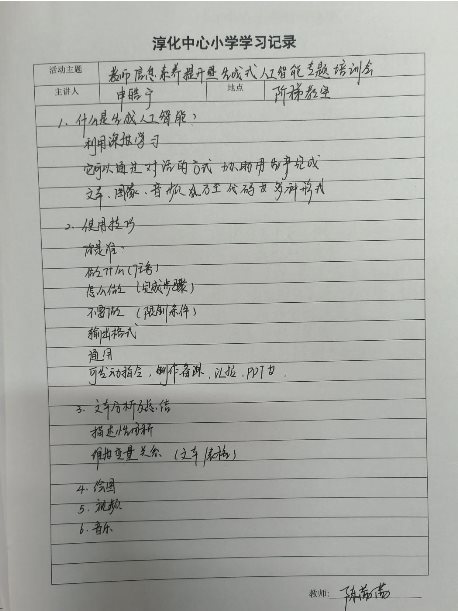 淳化中心小学学习记录
活动主题 教师信息素养提升暨生成式人工智能专题培训会
主讲人 申皓宁 地点 阶梯教室
1. 什么是生成人工智能?
利用深度学习
它可以通过对话的方式协助用户完成
文本、图像、音频乃至代码等多种形式
2. 使用技巧
你是谁:
做什么(任务)
怎么做 (完成步骤)
不要做 (限制条件)
输出格式
通用
可发动指令,制作备课,汇报,PPT
3. 文本分析及总结
描述性分析
变量关系 (文本/表格)
4. 绘图
5. 视频
6. 音乐
教师: 陈茜茜